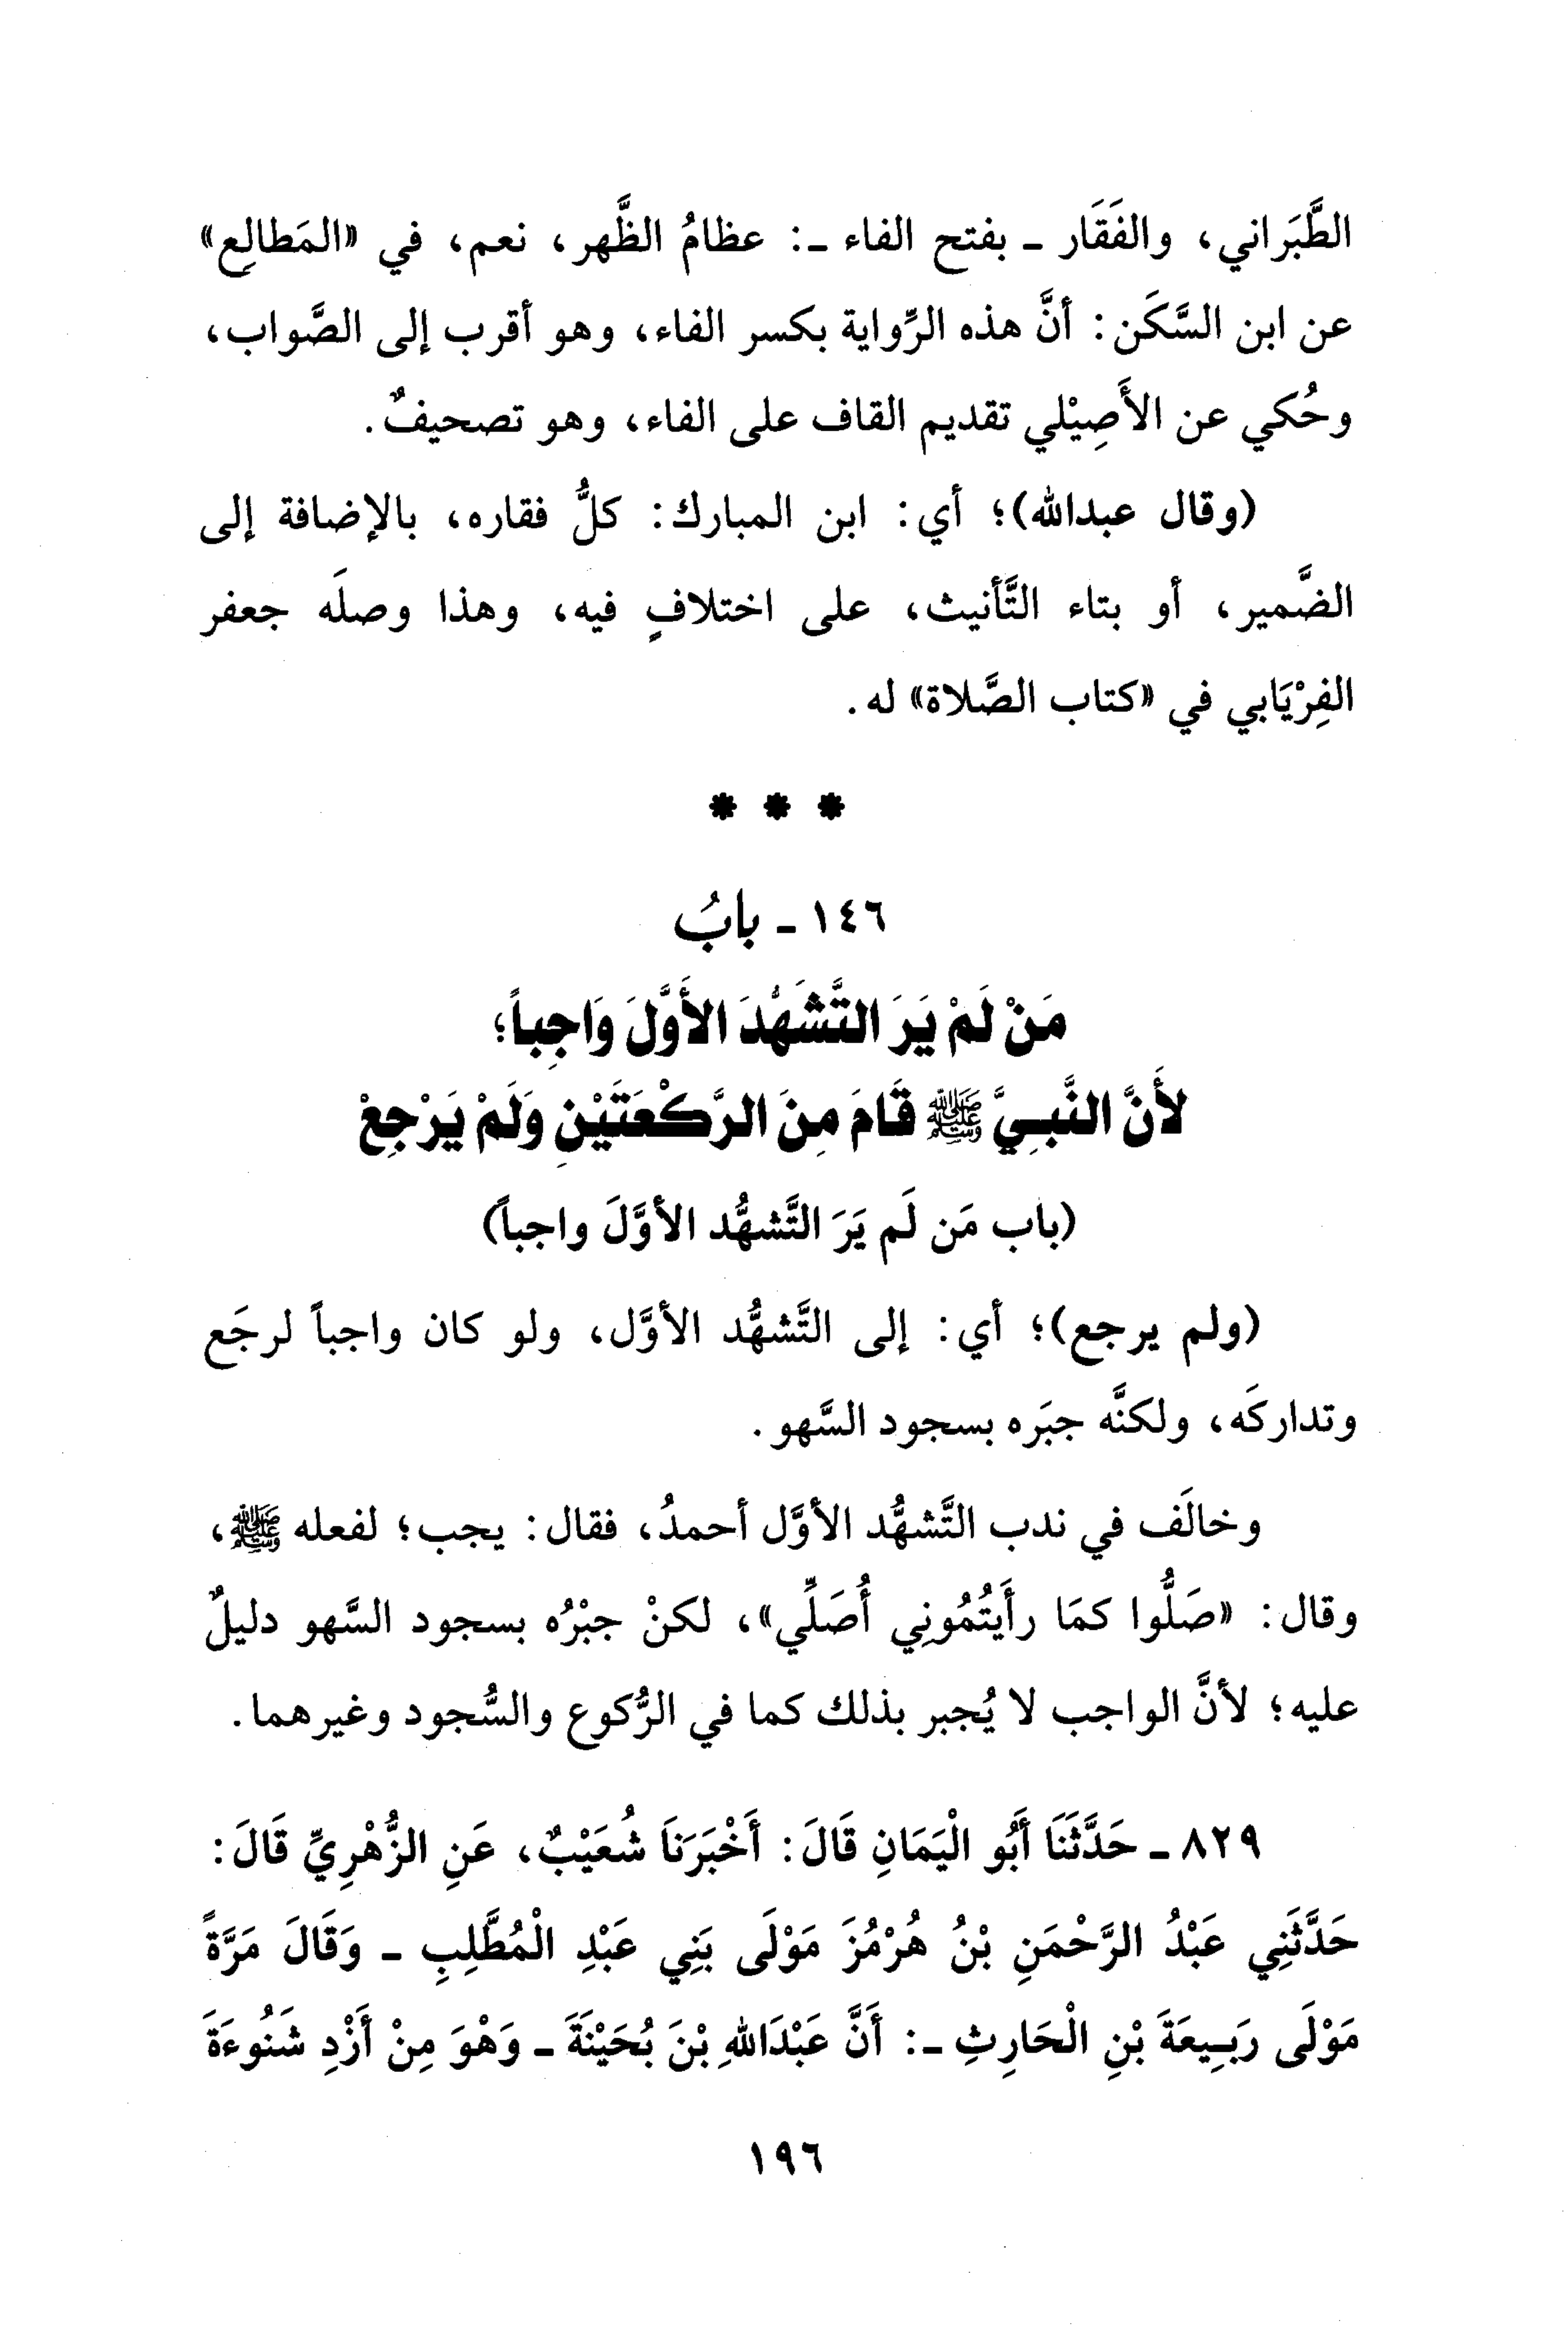 الطَّبَراني، والفَقَار ـ بفتح الفاء ـ: عظامُ الظَّهر، نعم، في «المَطالِع»
عن ابن السَّكَن: أنَّ هذه الرِّواية بكسر الفاء، وهو أقرب إلى الصَّواب،
وحُكي عن الأَصِيْلي تقديم القاف على الفاء، وهو تصحيفٌ.
(وقال عبدالله)؛ أي: ابن المبارك: كلُّ فقاره، بالإضافة إلى
الضَّمير، أو بتاء التَّأنيث، على اختلافٍ فيه، وهذا وصلَه جعفر
الفِرْيَابي في «كتاب الصَّلاة» له.
* * *
١٤٦ ـ بابُ
مَنْ لَمْ يَرَ التَّشَهُّدَ الأَوَّلَ وَاجِباً؛
لأَنَّ النَّبِيَّ ﷺ قَامَ مِنَ الرَّكْعَتَيْنِ وَلَمْ يَرْجِعْ
(باب مَن لَم يَرَ التَّشهُّد الأوَّلَ واجباً)
(ولم يرجع)؛ أي: إلى التَّشهُّد الأوَّل، ولو كان واجباً لرجَع
وتداركَه، ولكنَّه جبَره بسجود السَّهو.
وخالَف في ندب التَّشهُّد الأوَّل أحمدُ، فقال: يجب؛ لفعله ﷺ،
وقال: «صَلُّوا كمَا رأَيتُمُونِي أُصَلِّي»، لكنْ جبْرُه بسجود السَّهو دليلٌ
عليه؛ لأنَّ الواجب لا يُجبر بذلك كما في الرُّكوع والسُّجود وغيرهما.
٨٢٩ ـ حَدَّثَنَا أَبُو الْيَمَانِ قَالَ: أَخْبَرَنَا شُعَيْبٌ، عَنِ الزُّهْرِيِّ قَالَ:
حَدَّثَنِي عَبْدُ الرَّحْمَنِ بْنُ هُرْمُزَ مَوْلَى بَنِي عَبْدِ الْمُطَّلِبِ ـ وَقَالَ مَرَّةً
مَوْلَى رَبِيعَةَ بْنِ الْحَارِثِ ـ: أَنَّ عَبْدَاللهِ بْنَ بُحَيْنَةَ ـ وَهْوَ مِنْ أَزْدِ شَنُوءَةَ
١٩٦